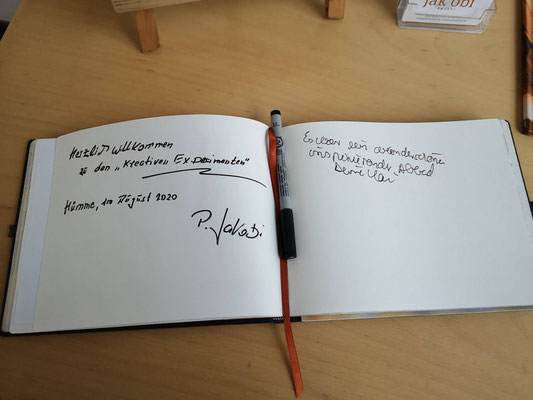 jak obi
Herzlich Willkommen
zu den „Kreativen Experimenten"
Hümme, im August 2020
P. Jakobi
Es war ein wunderschöner
inspirierender Abend